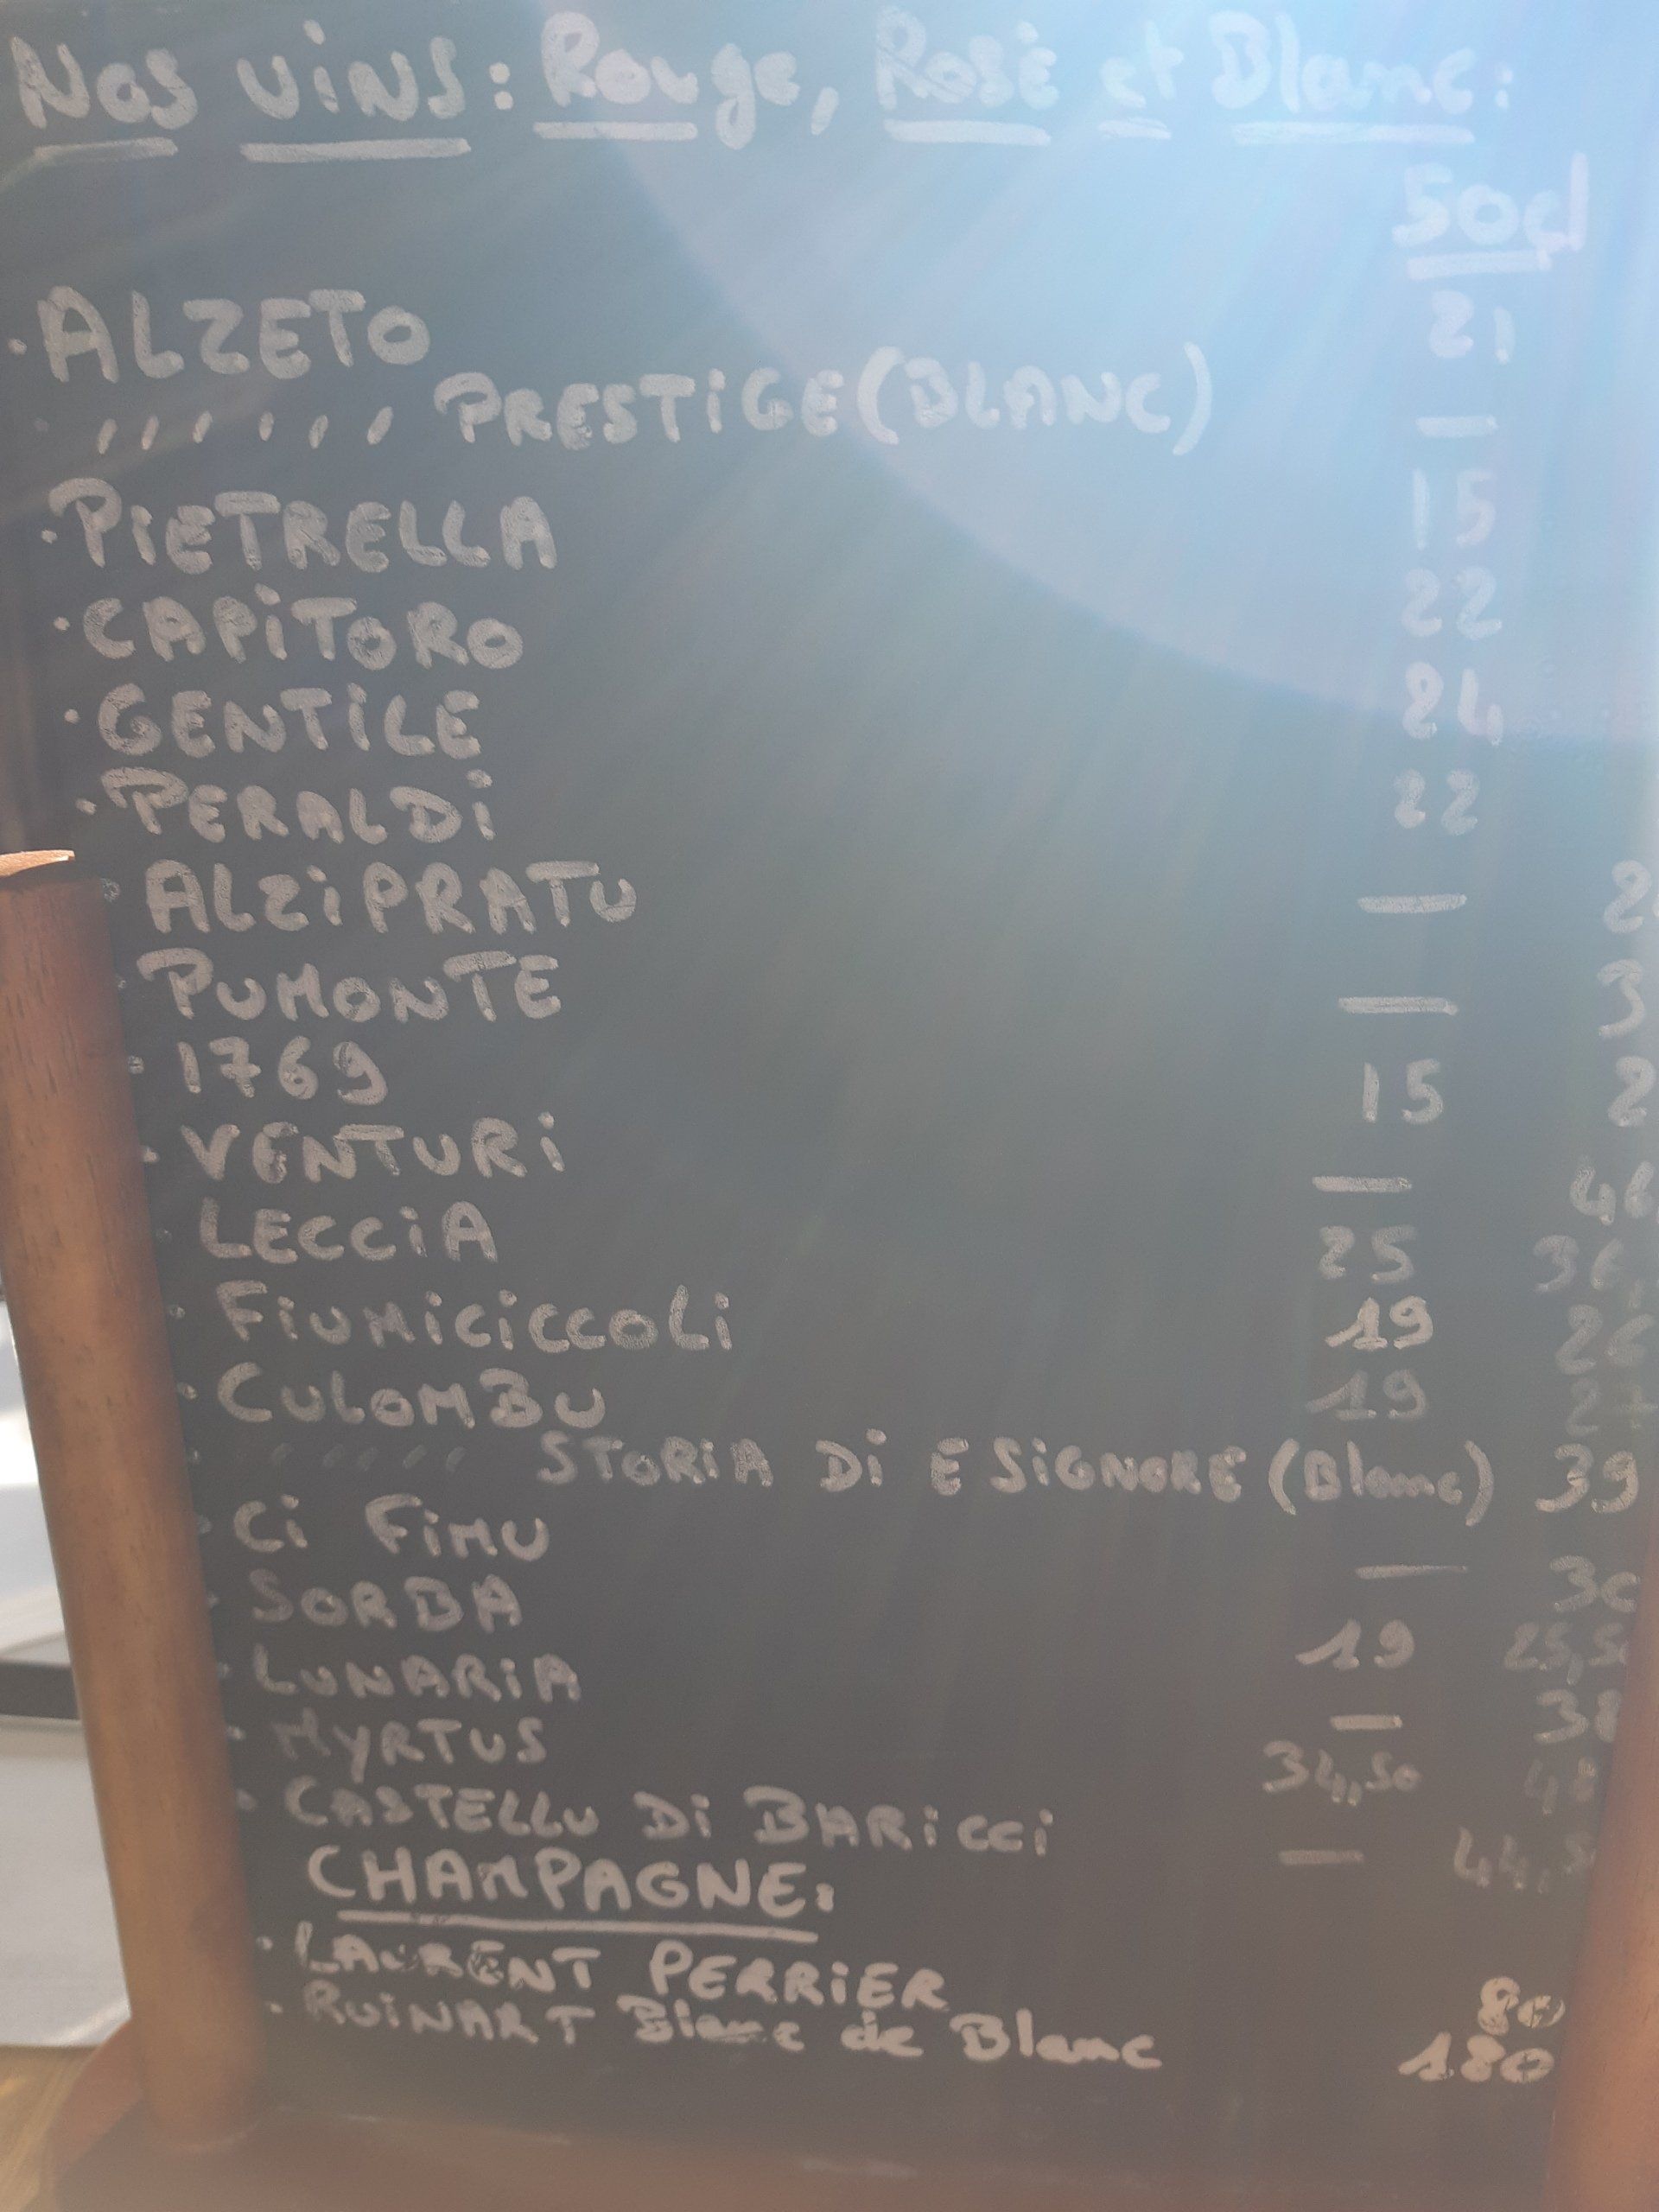 Nos vins: Rouge, Rosé et Blanc:
50cl
·ALZETO 21
" " " PRESTiGE (BLANC) —
·PiETRELLA 15
·CAPiTORO 22
·GENTiLE 24
·PERALDi 22
·ALZiPRATU —
·PUMONTE —
·1769 15
·VENTURi —
·LECCiA 25
·FiUMiCiCCOLi 19
·CULOMBU 19
" " " STORiA Di E SiGNORE (Blanc) 39
·Ci FiMU —
·SORBA 19 25,50
·LUNARiA — 38
·MYRTUS 34,50
·CASTELLU Di BARiCCi — 44,50
CHAMPAGNE:
·LAURENT PERRiER 80
·RUiNART Blanc de Blanc 180